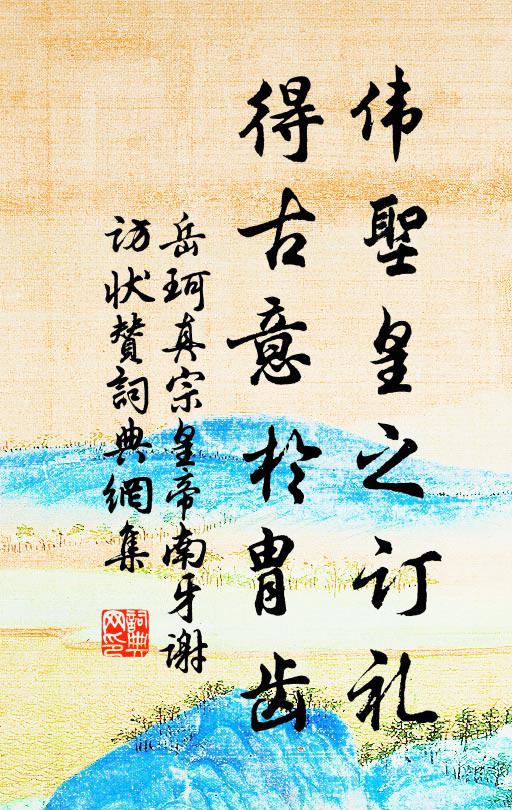 伟聖皇之订礼
得古意於胄齿
岳珂真宗皇帝南牙谢
访状賛詞典網集
詞典
网印